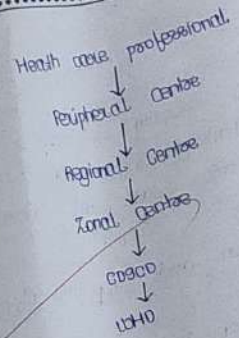 Health care professional
Peripheral Centre
Regional Centre
Zonal Centre
CDSCO
WHO